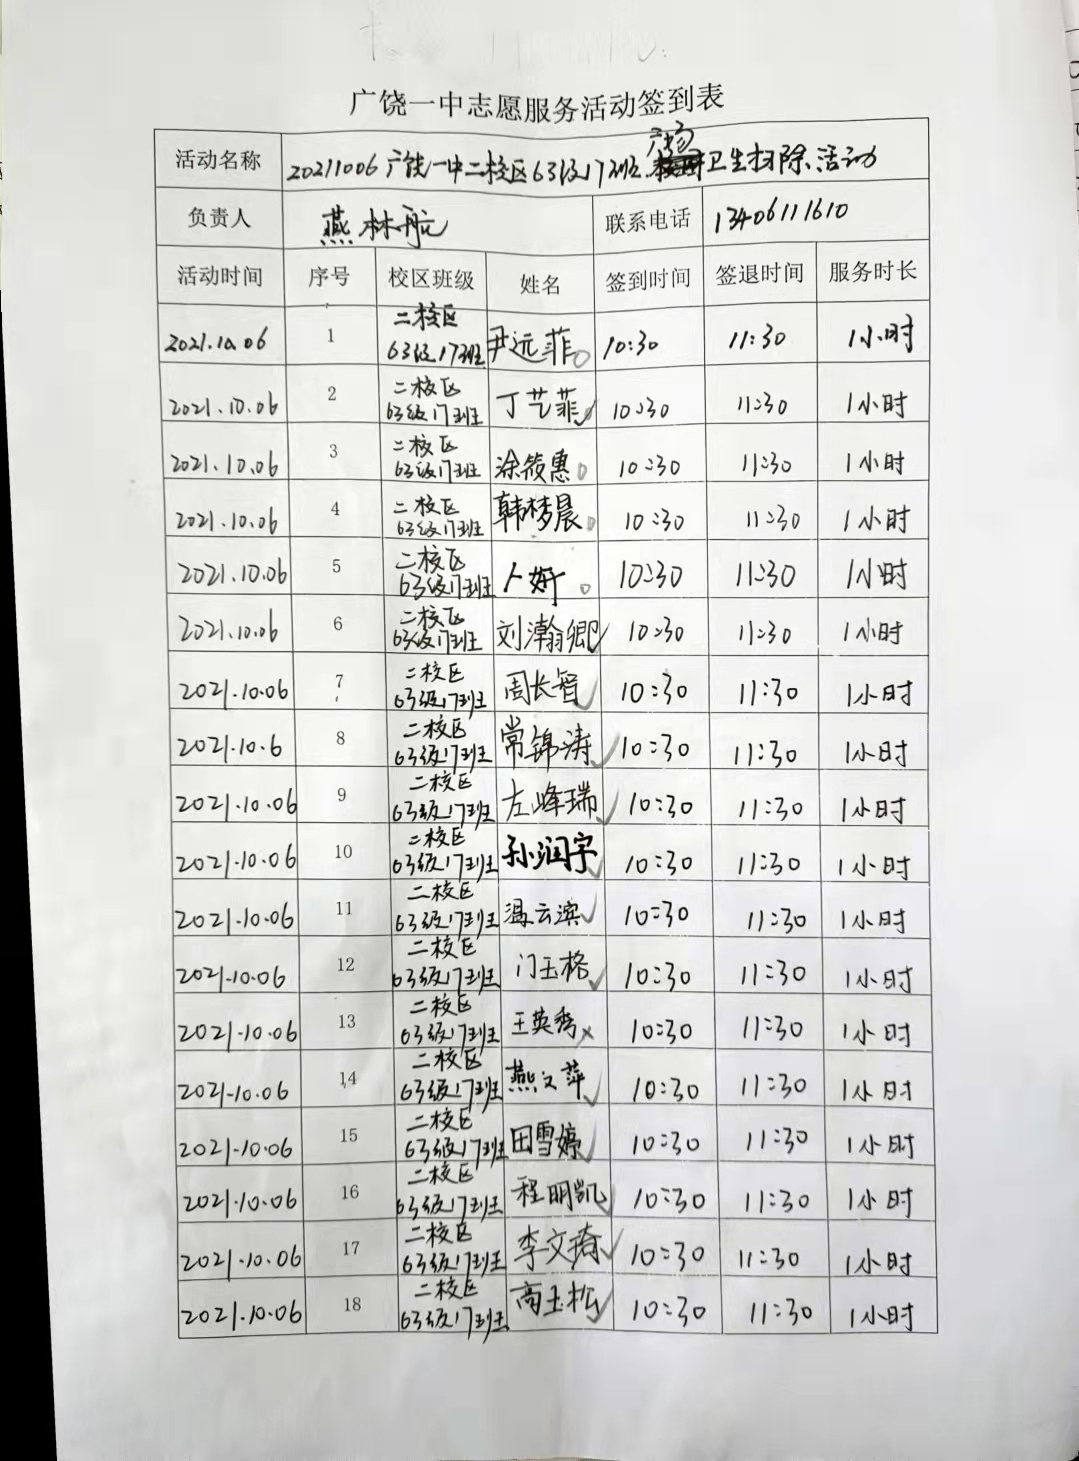 广饶一中志愿服务活动签到表
活动名称 20211006广饶一中二校区63级17班 卫生扫除活动
负责人 燕林航 联系电话 13406111610
活动时间 序号 校区班级 姓名 签到时间 签退时间 服务时长
2021.10.06 1 二校区 63级17班 尹远菲 10:30 11:30 1小时
2021.10.06 2 二校区 63级17班 丁艺菲 10:30 11:30 1小时
2021.10.06 3 二校区 63级17班 涂筱惠 10:30 11:30 1小时
2021.10.06 4 二校区 63级17班 韩梦晨 10:30 11:30 1小时
2021.10.06 5 二校区 63级17班 10:30 11:30 1小时
2021.10.06 6 二校区 63级17班 刘瀚卿 10:30 11:30 1小时
2021.10.06 7 二校区 63级17班 周长智 10:30 11:30 1小时
2021.10.6 8 二校区 63级17班 常锦涛 10:30 11:30 1小时
2021.10.06 9 二校区 63级17班 左峰瑞 10:30 11:30 1小时
2021.10.06 10 二校区 63级17班 孙润宇 10:30 11:30 1小时
2021.10.06 11 二校区 63级17班 温云滨 10:30 11:30 1小时
2021.10.06 12 二校区 63级17班 门玉格 10:30 11:30 1小时
2021.10.06 13 二校区 63级17班 王英秀 10:30 11:30 1小时
2021.10.06 14 二校区 63级17班 燕文萍 10:30 11:30 1小时
2021.10.06 15 二校区 63级17班 田雪婷 10:30 11:30 1小时
2021.10.06 16 二校区 63级17班 程明凯 10:30 11:30 1小时
2021.10.06 17 二校区 63级17班 李文琦 10:30 11:30 1小时
2021.10.06 18 二校区 63级17班 商玉松 10:30 11:30 1小时